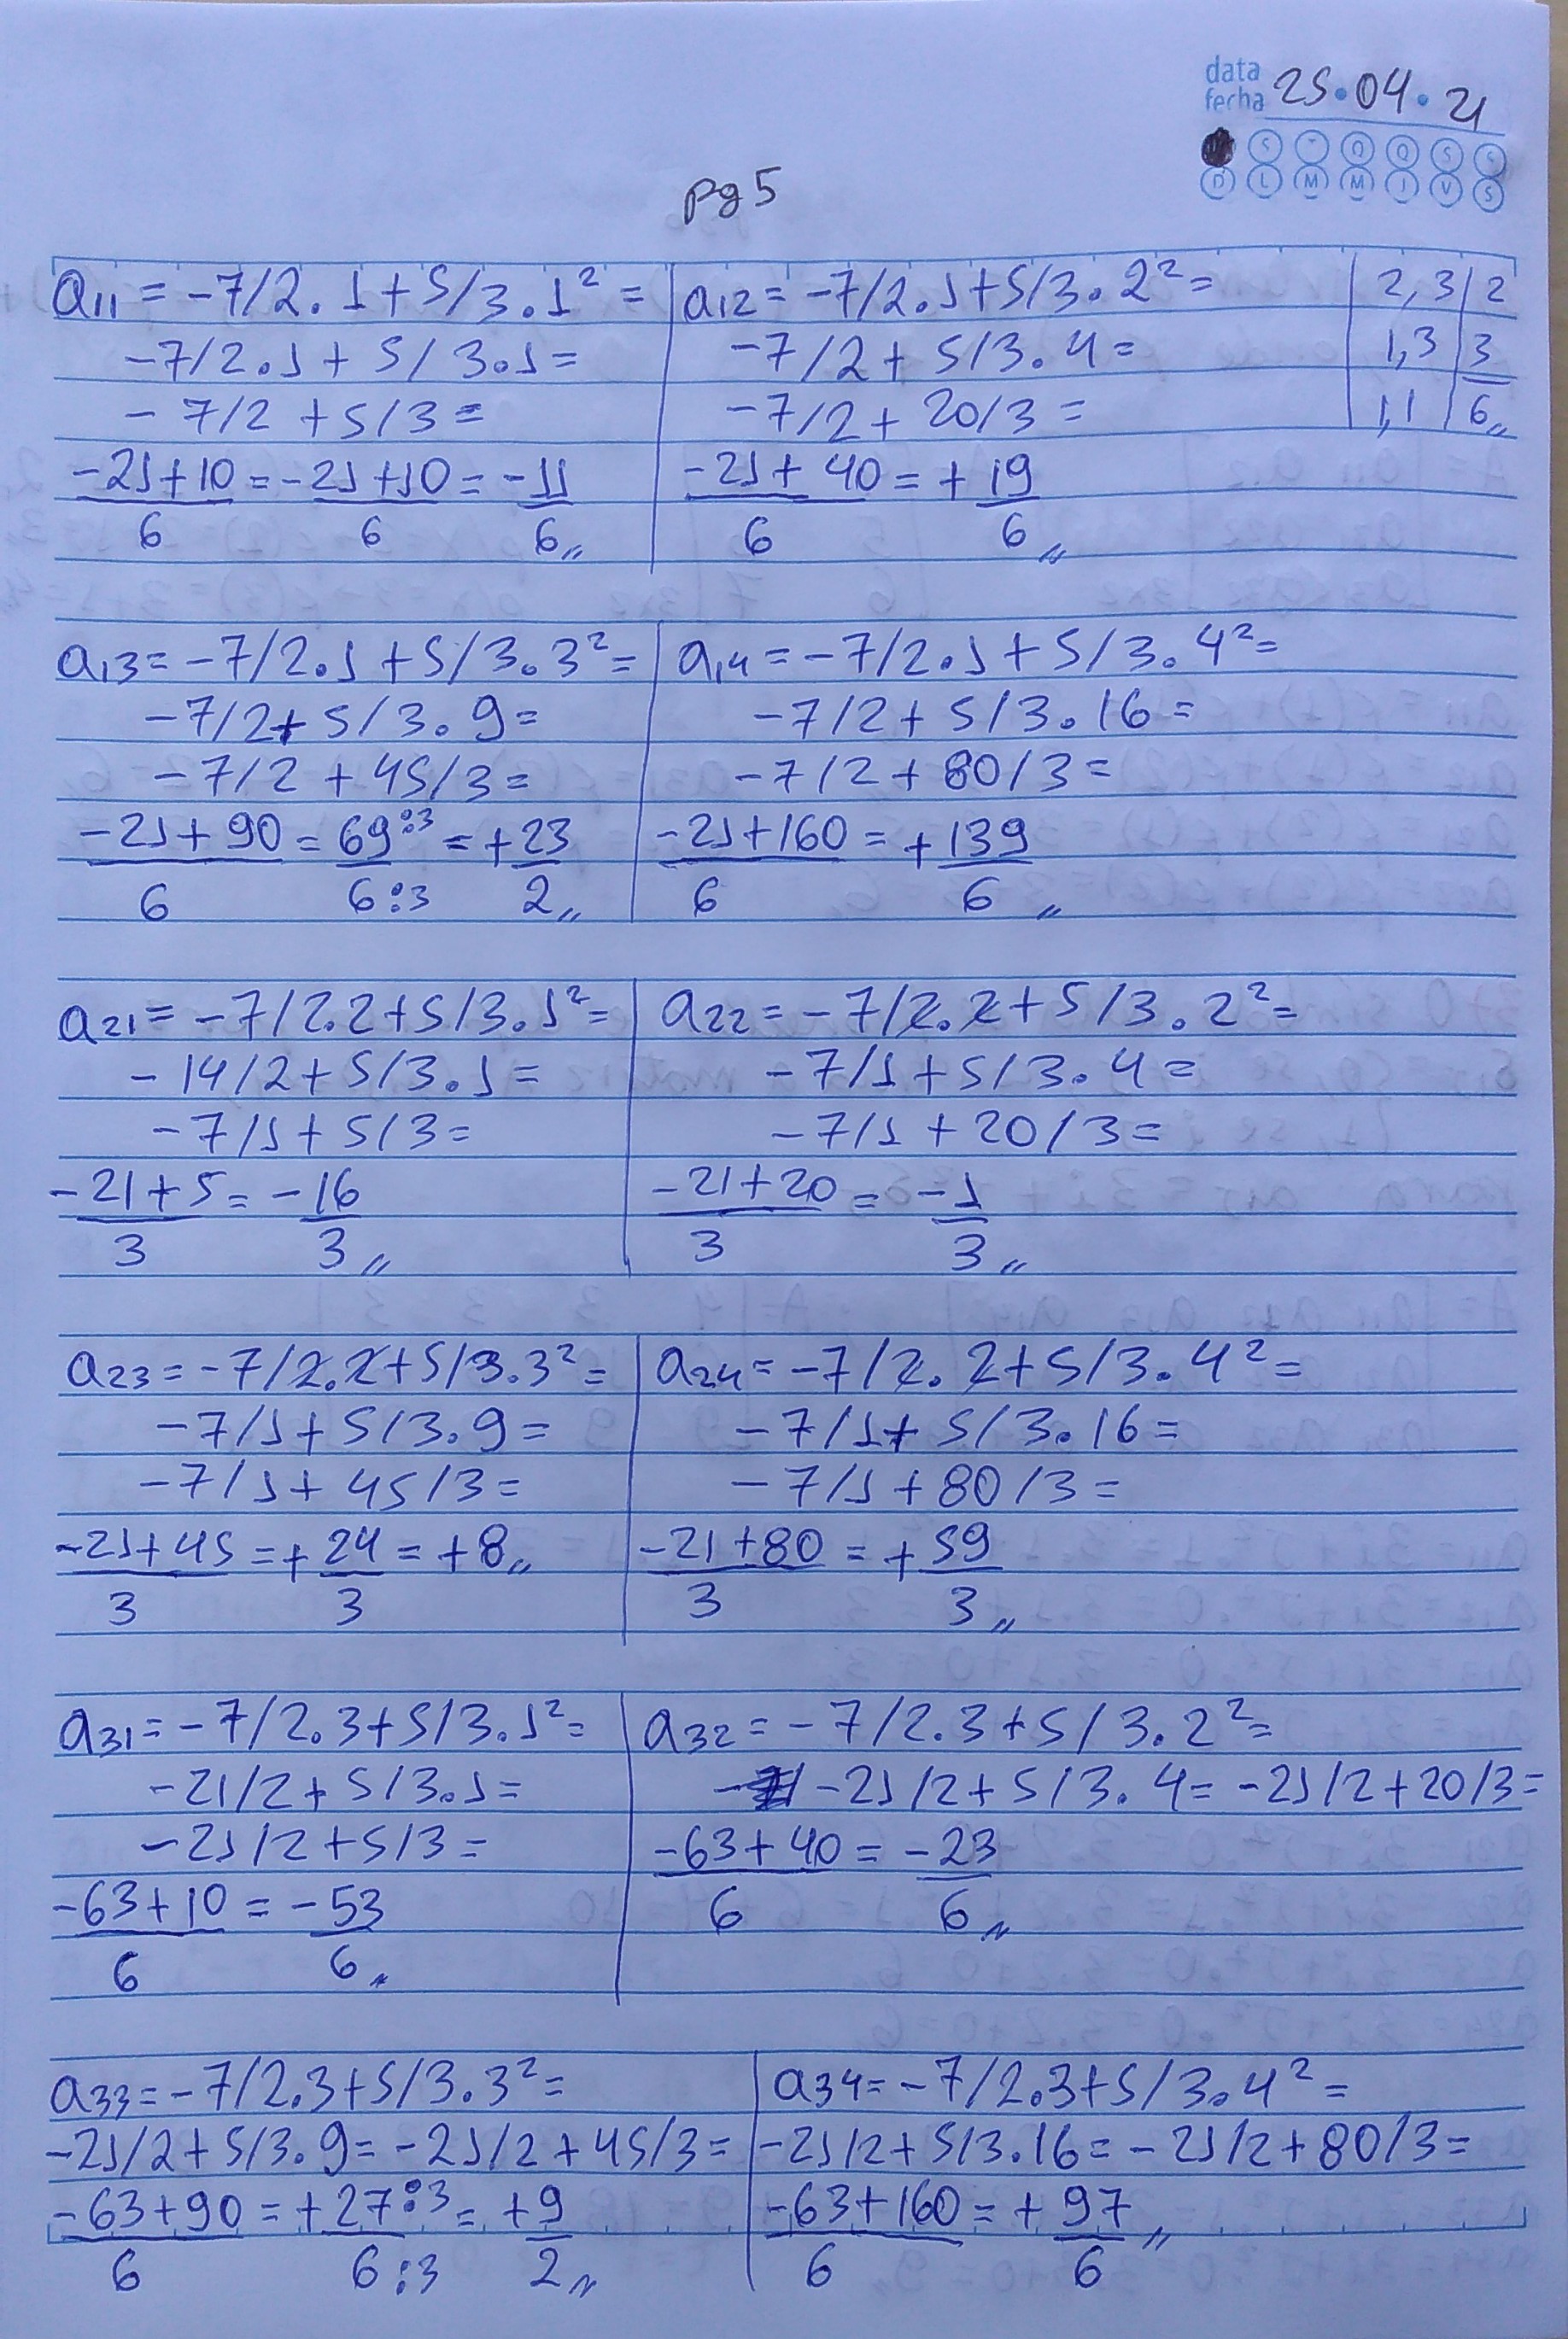 data
fecha 25.04.21
D L M M J V S
pg 5
a11 = -7/2.1+5/3.1² =
-7/2.1+5/3.1=
-7/2+5/3=
-21+10 = -21+10 = -11
6 6 6,,
a12= -7/2.1+5/3.2²=
-7/2+5/3.4=
-7/2+20/3=
-21+40 = +19
6 6,,
2,3|2
1,3|3
1,1|6,,
a13=-7/2.1+5/3.3²=
-7/2+5/3.9=
-7/2+45/3=
-21+90 = 69:3 = +23
6 6:3 2,,
a14=-7/2.1+5/3.4²=
-7/2+5/3.16=
-7/2+80/3=
-21+160 = +139
6 6,,
a21=-7/2.2+5/3.1²=
-14/2+5/3.1=
-7/1+5/3=
-21+5 = -16
3 3,,
a22=-7/2.2+5/3.2²=
-7/1+5/3.4=
-7/1+20/3=
-21+20 = -1
3 3,,
a23=-7/2.2+5/3.3²=
-7/1+5/3.9=
-7/1+45/3=
-21+45 = +24 = +8,,
3 3
a24=-7/2.2+5/3.4²=
-7/1+5/3.16=
-7/1+80/3=
-21+80 = +59
3 3,,
a31=-7/2.3+5/3.1²=
-21/2+5/3.1=
-21/2+5/3=
-63+10 = -53
6 6,,
a32=-7/2.3+5/3.2²=
-21/2+5/3.4=-21/2+20/3=
-63+40 = -23
6 6,,
a33=-7/2.3+5/3.3²=
-21/2+5/3.9=-21/2+45/3=
-63+90 = +27:3 = +9
6 6:3 2,,
a34=-7/2.3+5/3.4²=
-21/2+5/3.16=-21/2+80/3=
-63+160 = +97,,
6 6